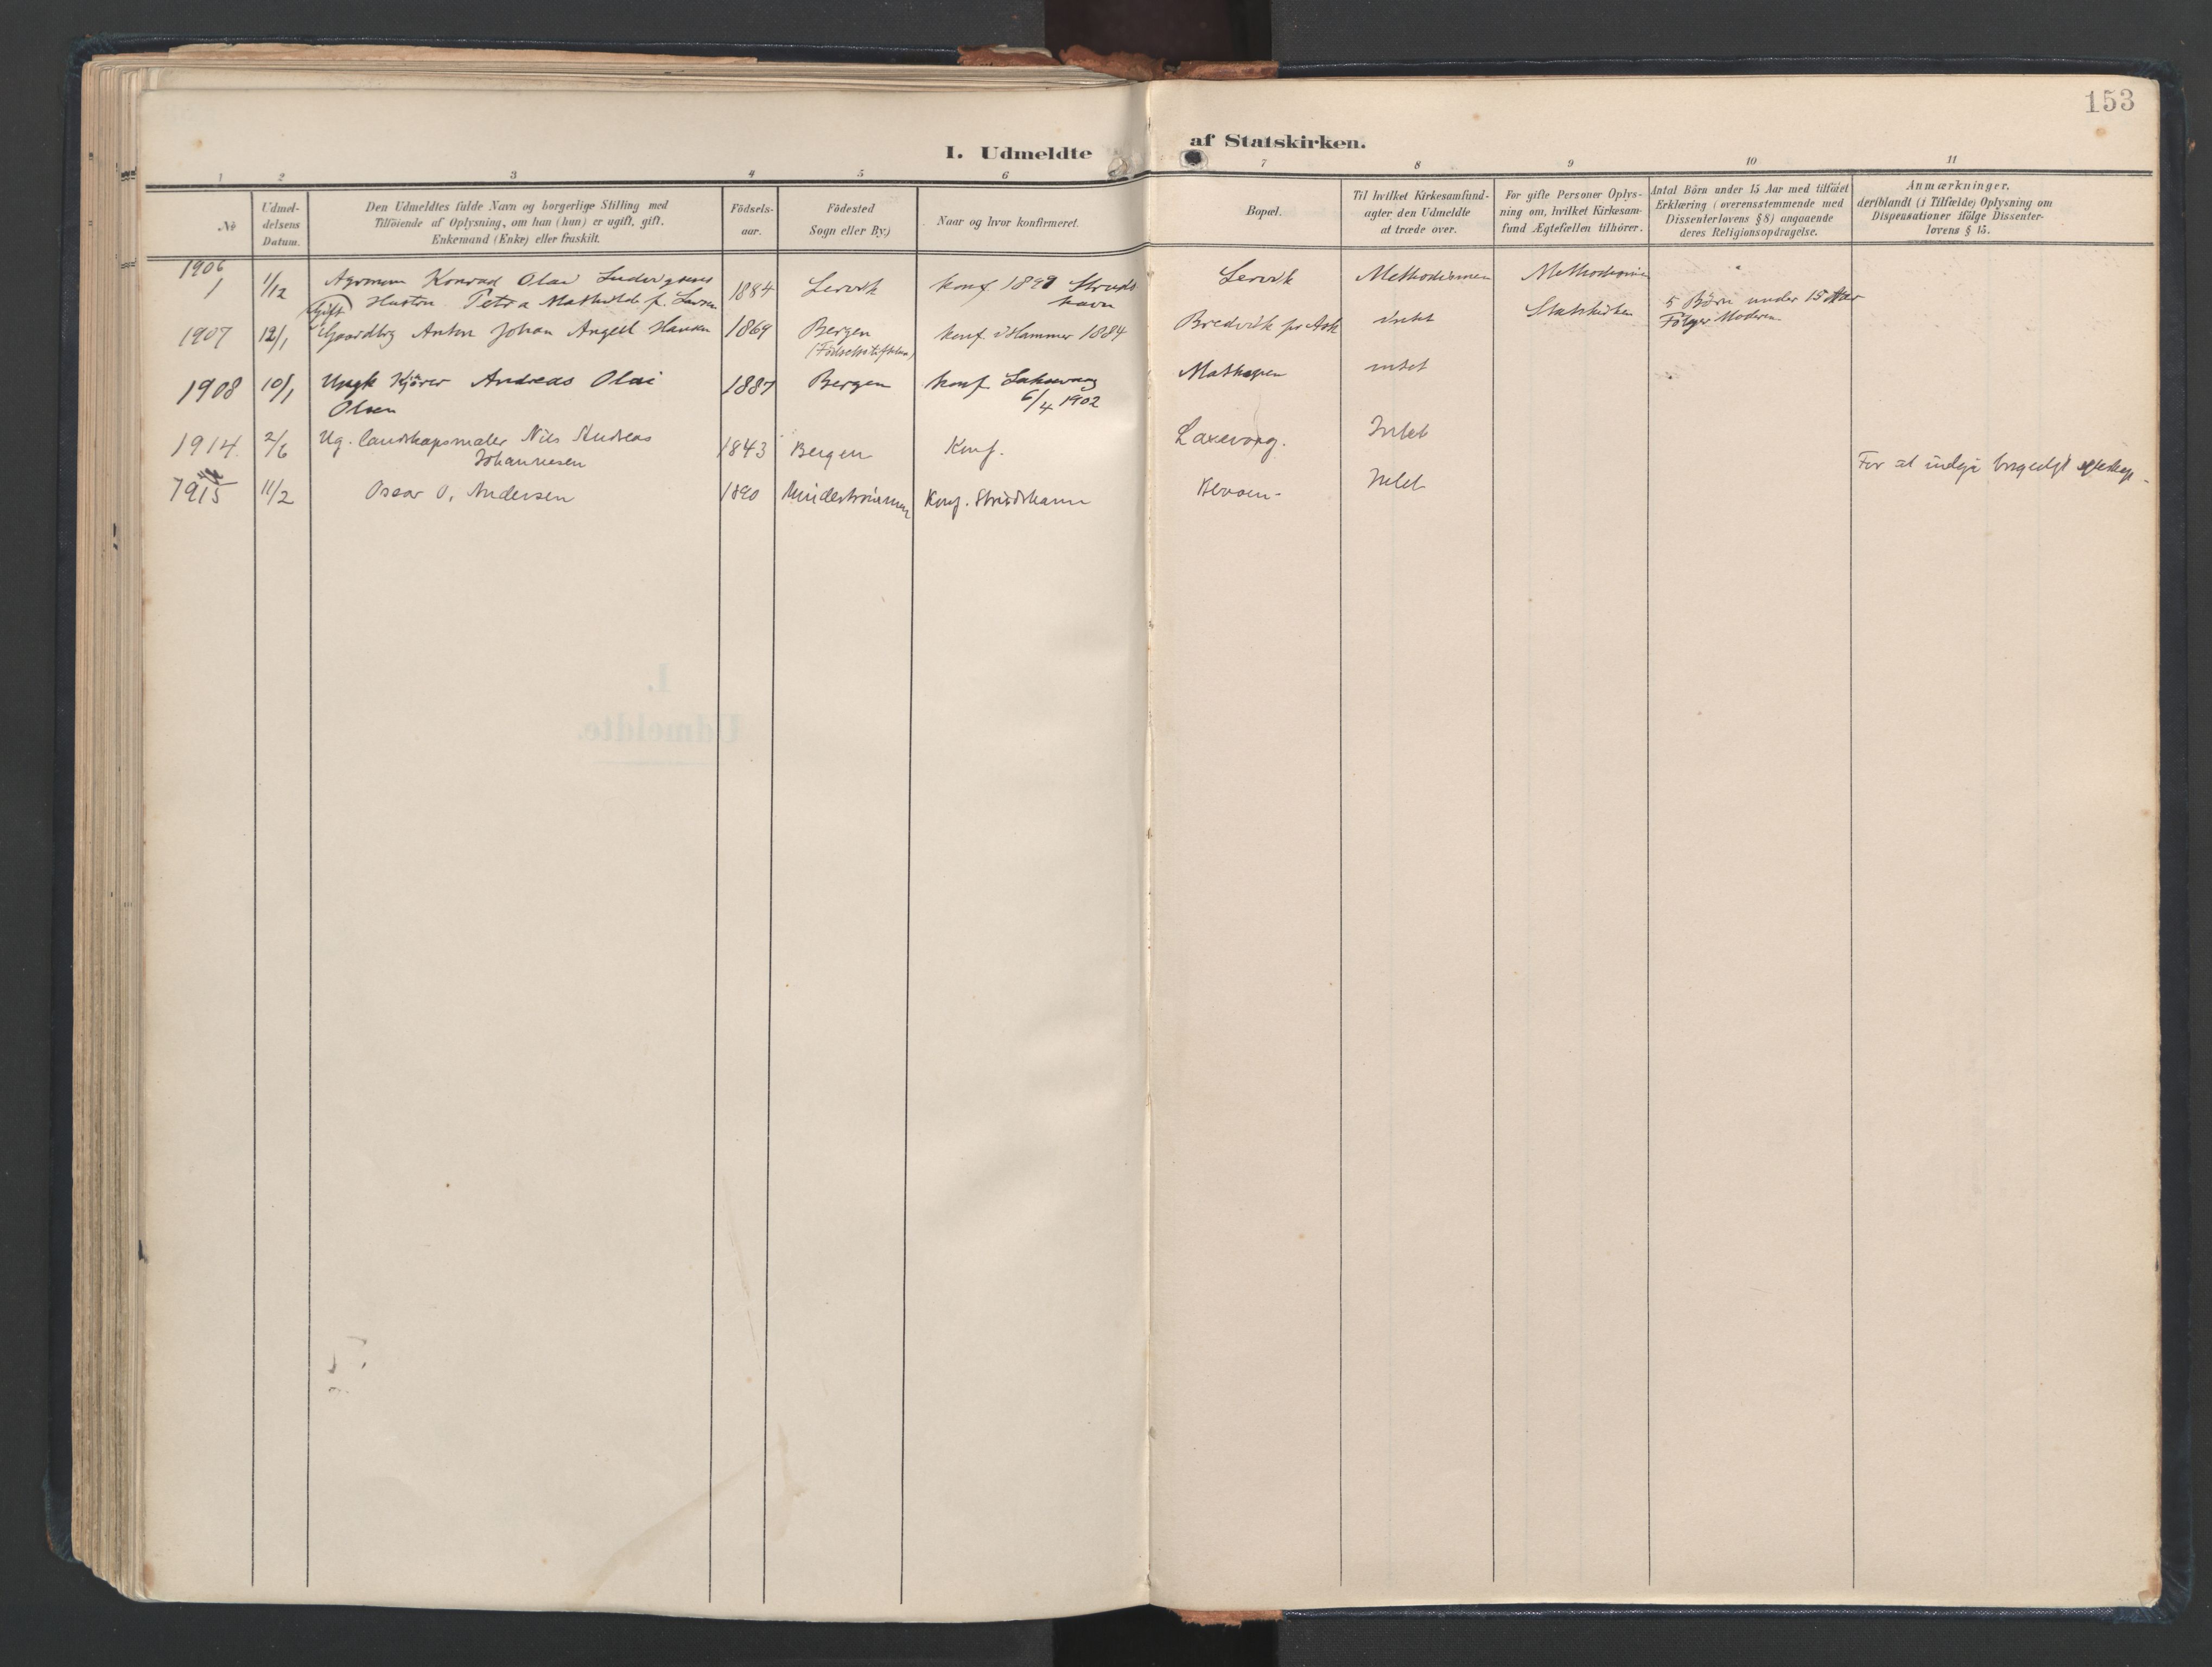 153
I. Udmeldte af Statskirken.
1 2 3 4 5 6 7 8 9 10 11
№
Udmel-
delsens
Datum.
Den Udmeldtes fulde Navn og borgerlige Stilling med
Tilföiende af Oplysning, om han (hun) er ugift, gift,
Enkemand (Enke) eller fraskilt.
Födsels-
aar.
Födested
Sogn eller By.)
Naar og hvor konfirmeret.
Bopæl.
Til hvilket Kirkesamfund-
agter den Udmeldte
at træde over.
For gifte Personer Oplys-
ning om, hvilket Kirkesam-
fund Ægtefællen tilhörer.
Antal Börn under 15 Aar med tilföiet
Erklæring (overensstemmende med
Dissenterlovens § 8) angaaende
deres Religionsopdragelse.
Anmærkninger,
deriblandt (i Tilfælde) Oplysning om
Dispensationer ifölge Dissenter-
lovens § 15.
1906
1 1/12 Konrad Olai Ludvigsens 1884 Lervik Konf 1899 Lervik Methodismen
Hustru Petra Mathilde f. Larsen
(Gift)
1907 12/1 Anton Johan Angell Hansen 1869 Bergen Konf. i Hammer 1884 Bredvik pr Ask intet Statskirken 5 Börn under 15 Aar
(Fødselsstiftelsen) Følger Moderen
1908 10/1 Ungk Andreas Olai 1887 Bergen Konf. Laksevaag Mathopen intet
Olsen 6/4 1902
1914 2/6 Ug. landskapsmaler Nils Andreas 1843 Bergen Konf. Laxevaag. Intet
Johannesen
1915 11/2 Oscar O. Andersen 1890 Konf. Strudshavn Intet For at indgå borgerligt
I.
Udmeldte.